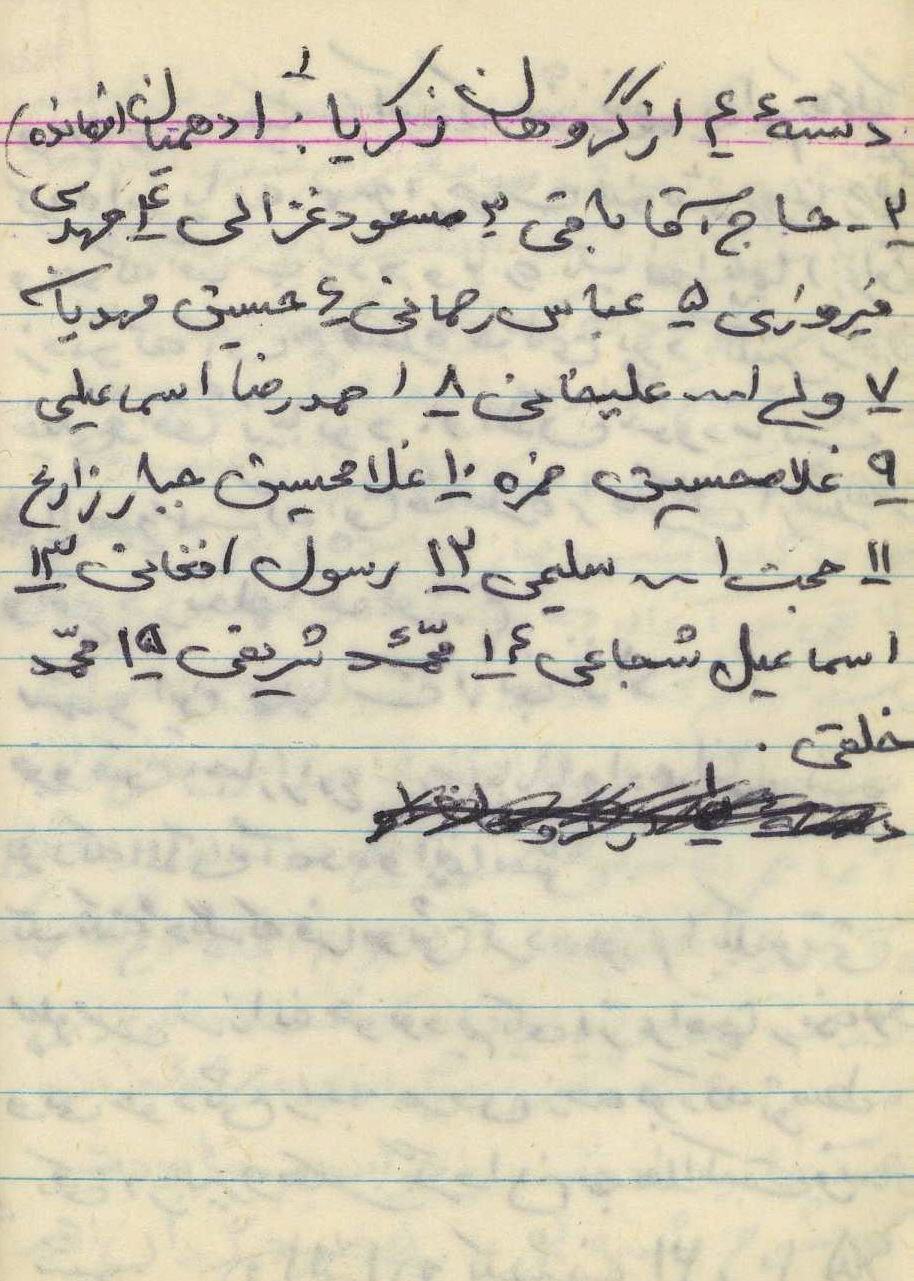 دستهٔ ۴ از گروهان زکریا: ۱ ادهمیان (فرمانده)
۲- حاج آقا باقی ۳ مسعود غزالی ۴ مهدی
فیروزی ۵ عباس رحمانی ۶ حسین مهدیان
۷ ولی ا... علیخانی ۸ احمدرضا اسماعیلی
۹ غلامحسین حمزه ۱۰ غلامحسین جبار زارع
۱۱ حجت ا... سلیمی ۱۲ رسول افغانی ۱۳
اسماعیل شجاعی ۱۴ محمّد شریفی ۱۵ محمّد
خلقی.